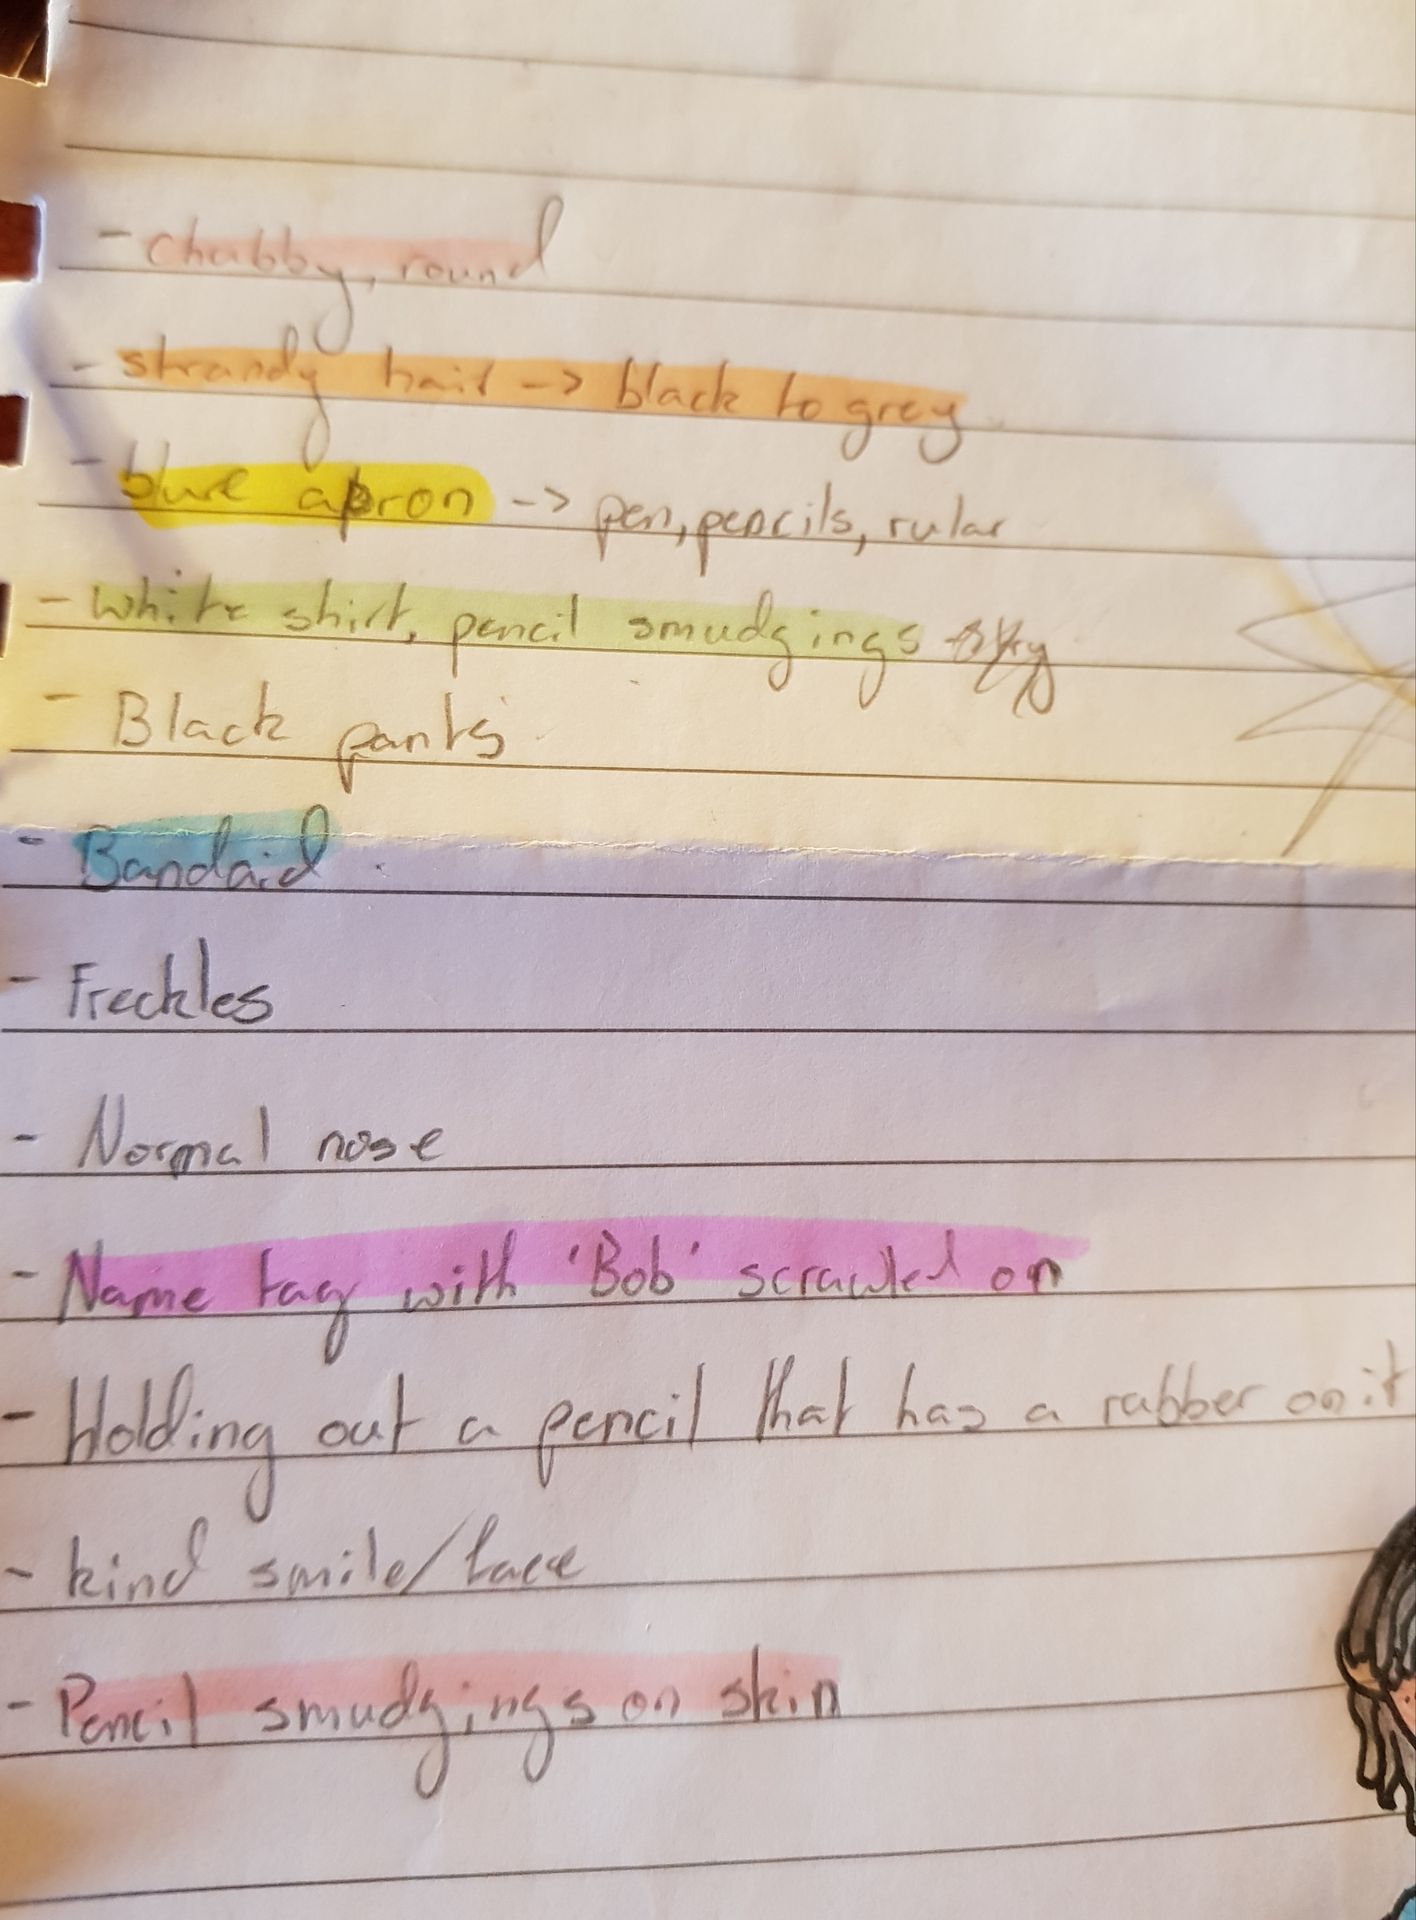 - chubby, round
- strandy hair -> black to grey
- blue apron -> pen, pencils, rular
- white shirt, pencil smudgings
- Black pants
- Bandaid
- Freckles
- Normal nose
- Name tag with 'Bob' scrawled on
- Holding out a pencil that has a rubber on it
- kind smile/face
- Pencil smudgings on skin